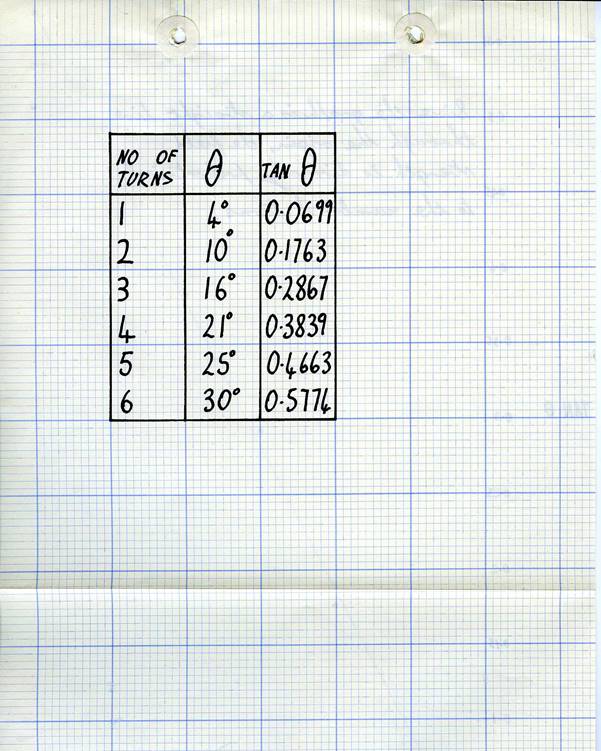 NO OF TURNS θ TAN θ
1 4° 0.0699
2 10° 0.1763
3 16° 0.2867
4 21° 0.3839
5 25° 0.4663
6 30° 0.5774